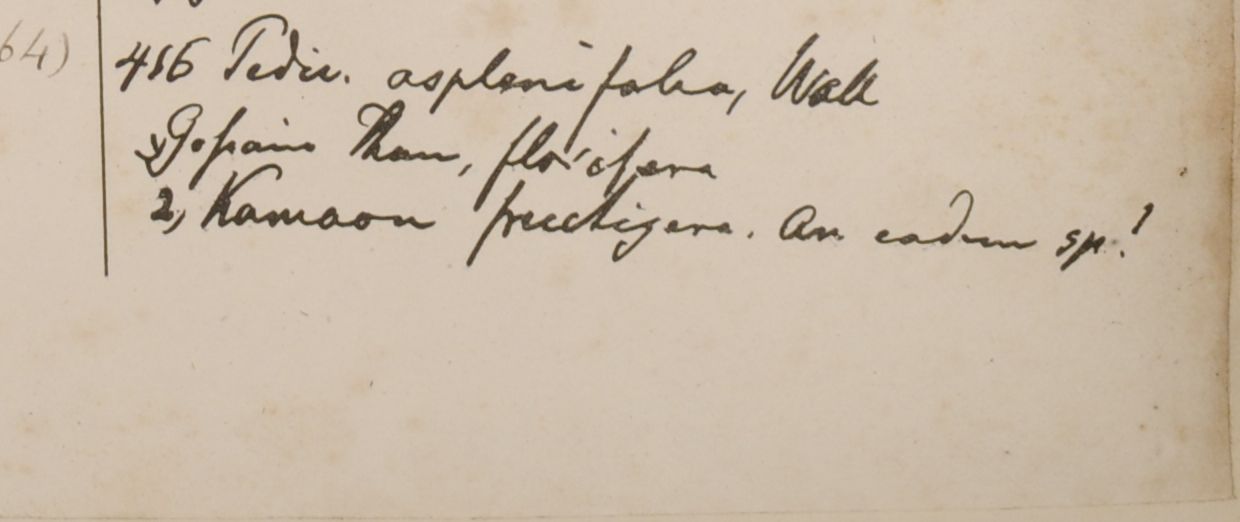 64)
416 Pedic. asplenifolia, Wall
1, Gossain Than, florifera
2, Kamaon fructigera. An eadem sp.?